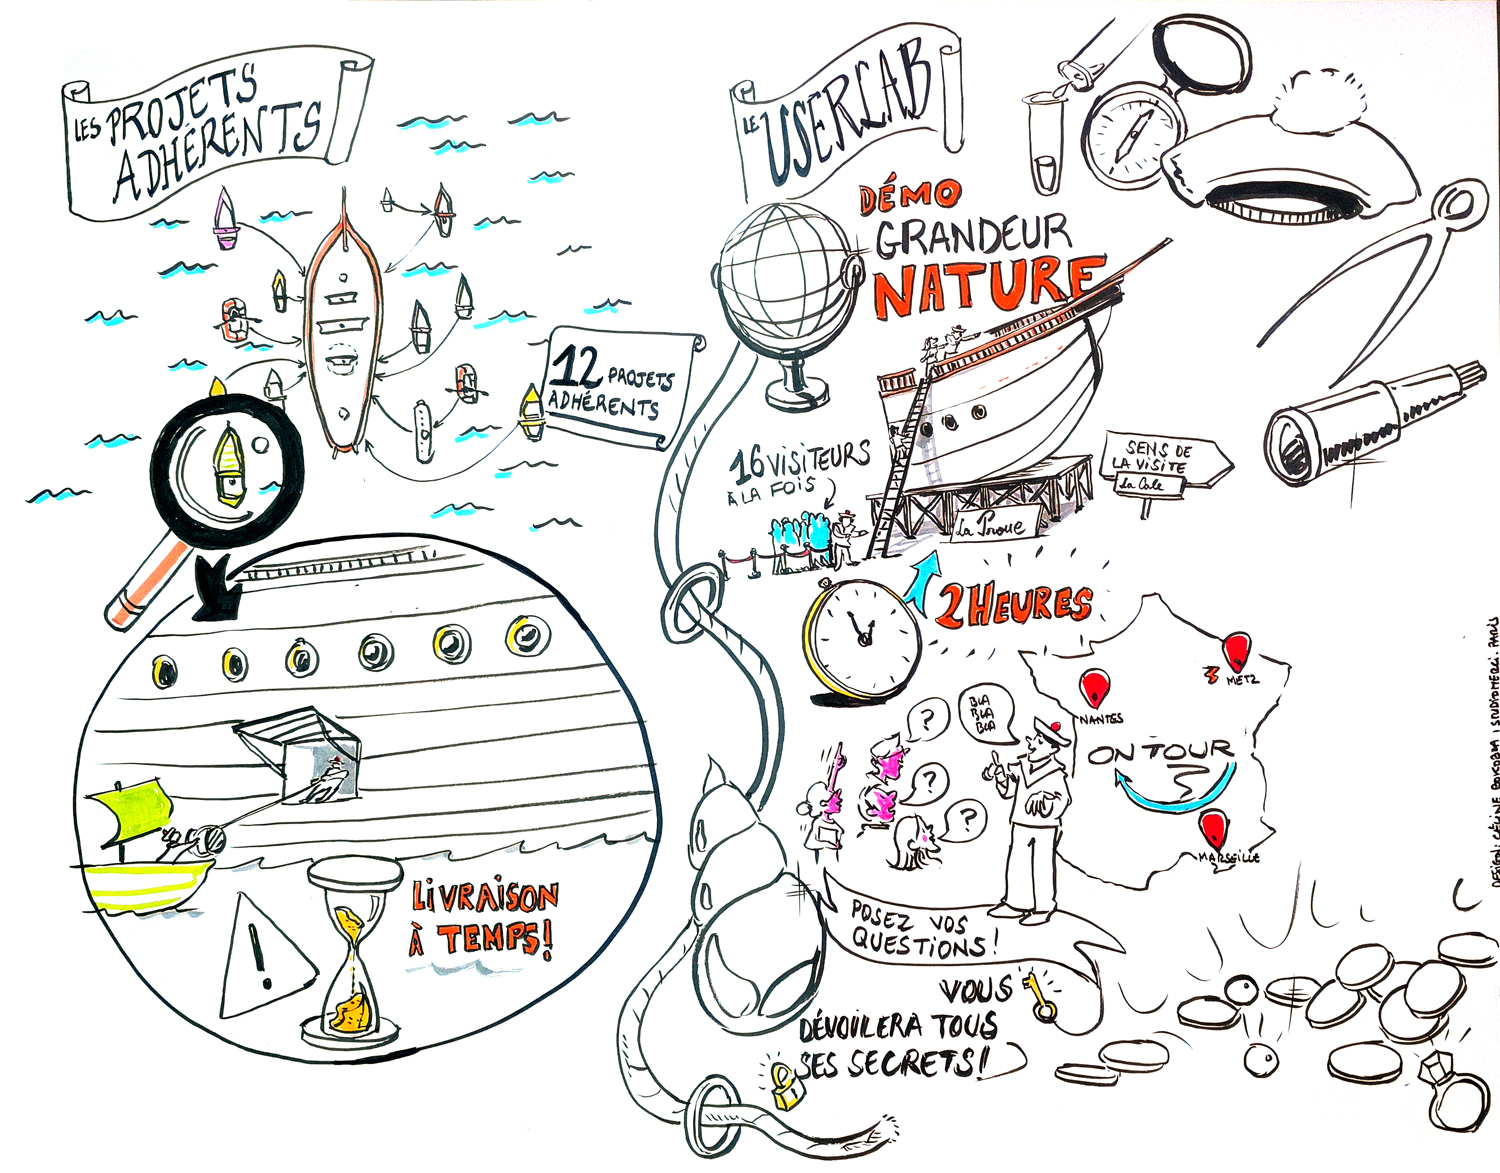 LES PROJETS
ADHÉRENTS
12 PROJETS
ADHÉRENTS
LIVRAISON
À TEMPS!
LE USERLAB
DÉMO
GRANDEUR
NATURE
16 VISITEURS
À LA FOIS
SENS DE
LA VISITE
La Cale
La Proue
2 HEURES
METZ
NANTES
ON TOUR
MARSEILLE
?
?
?
BLA
BLA
BLA
POSEZ VOS
QUESTIONS!
VOUS
DÉVOILERA TOUS
SES SECRETS!
!